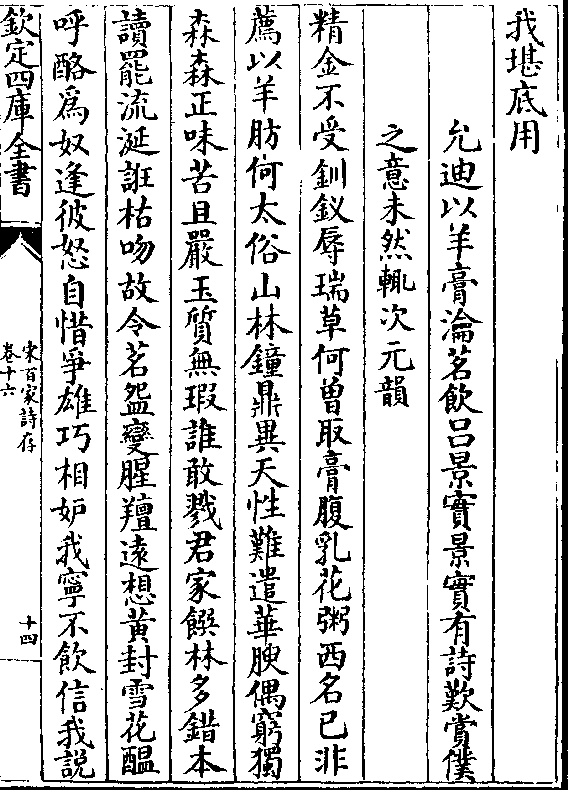 我堪底用
允迪以羊膏瀹茗飲吕景實景實有詩歎賞僕
之意未然輒次元韻
精金不受釧釵辱瑞草何曾取膏腹乳花粥西名已非
薦以羊肪何太俗山林鐘鼎異天性難遣華腴偶窮獨
森森正味苦且嚴玉質無瑕誰敢戮君家饌林多錯本
讀罷流涎誑枯吻故令茗盌變腥羶遠想黄封雪花醖
呼酪爲奴逢彼怒自惜爭雄巧相妒我寧不飲信我説
欽定四庫全書
宋百家詩存
卷十六
十四